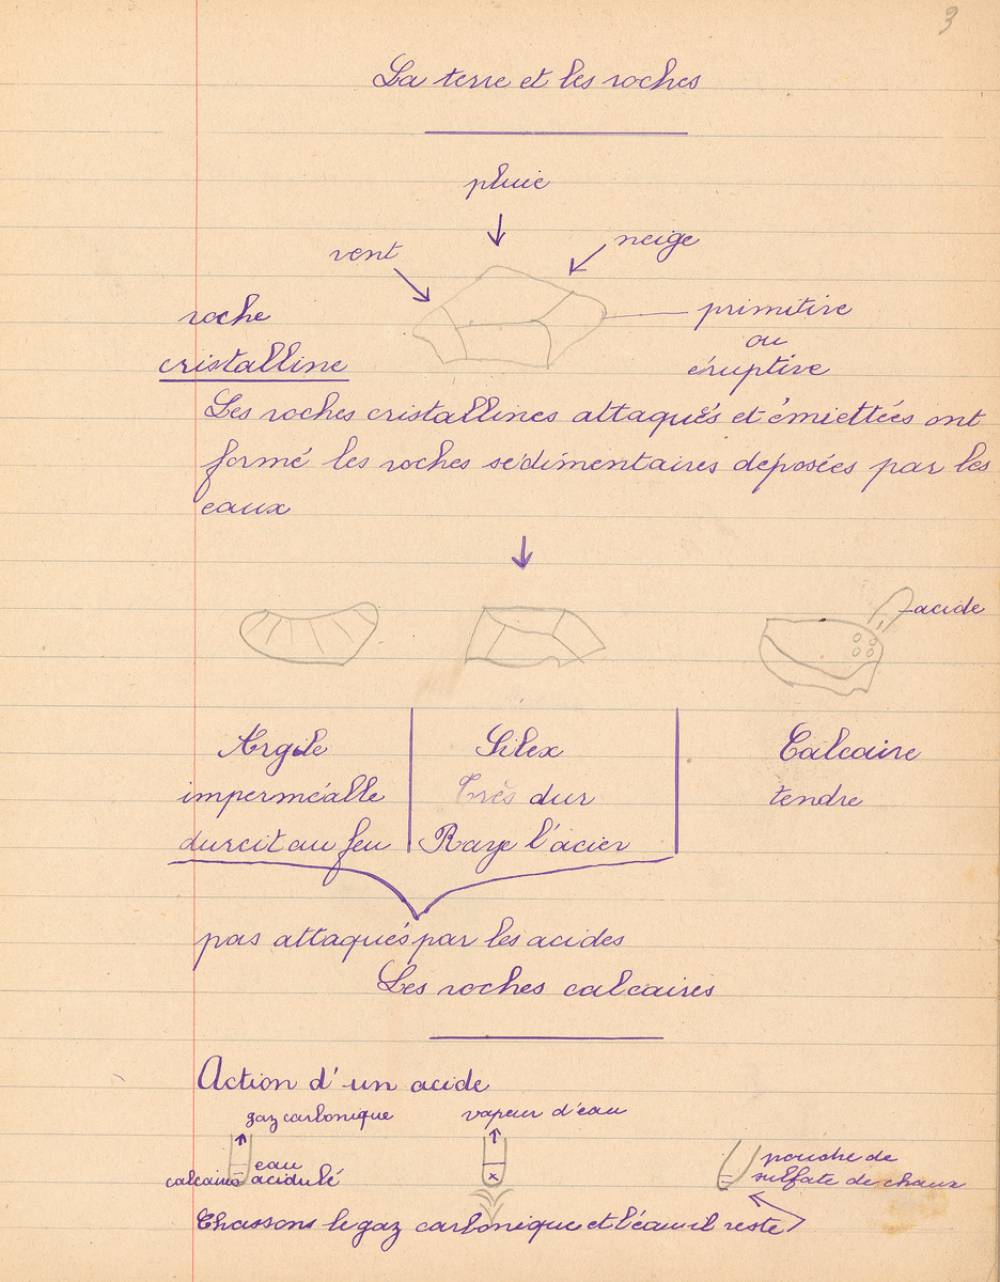 3
La terre et les roches
pluie
vent
neige
roche
cristalline
primitive
ou
éruptive
Les roches cristallines attaqués et émiettées ont
formé les roches sédimentaires deposées par les
eaux
acide
Argile
imperméable
durcit au feu
Silex
Très dur
Raye l'acier
Calcaire
tendre
pas attaqués par les acides
Les roches calcaires
Action d'un acide
gaz carbonique
eau
calcaire acidulé
vapeur d'eau
poudre de
sulfate de chaux
Chassons le gaz carbonique et l'eau il reste